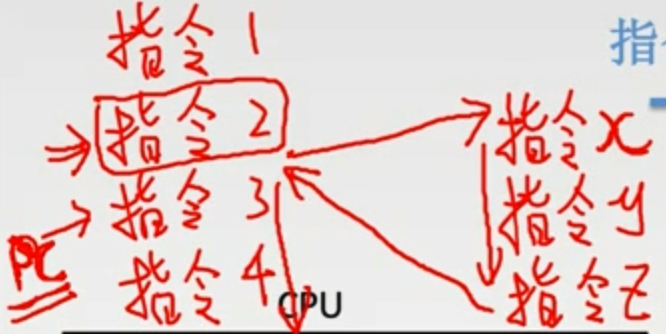 指令 1
指令 2
指令 3
指令 4
PC
指令 x
指令 y
指令 z
CPU
指